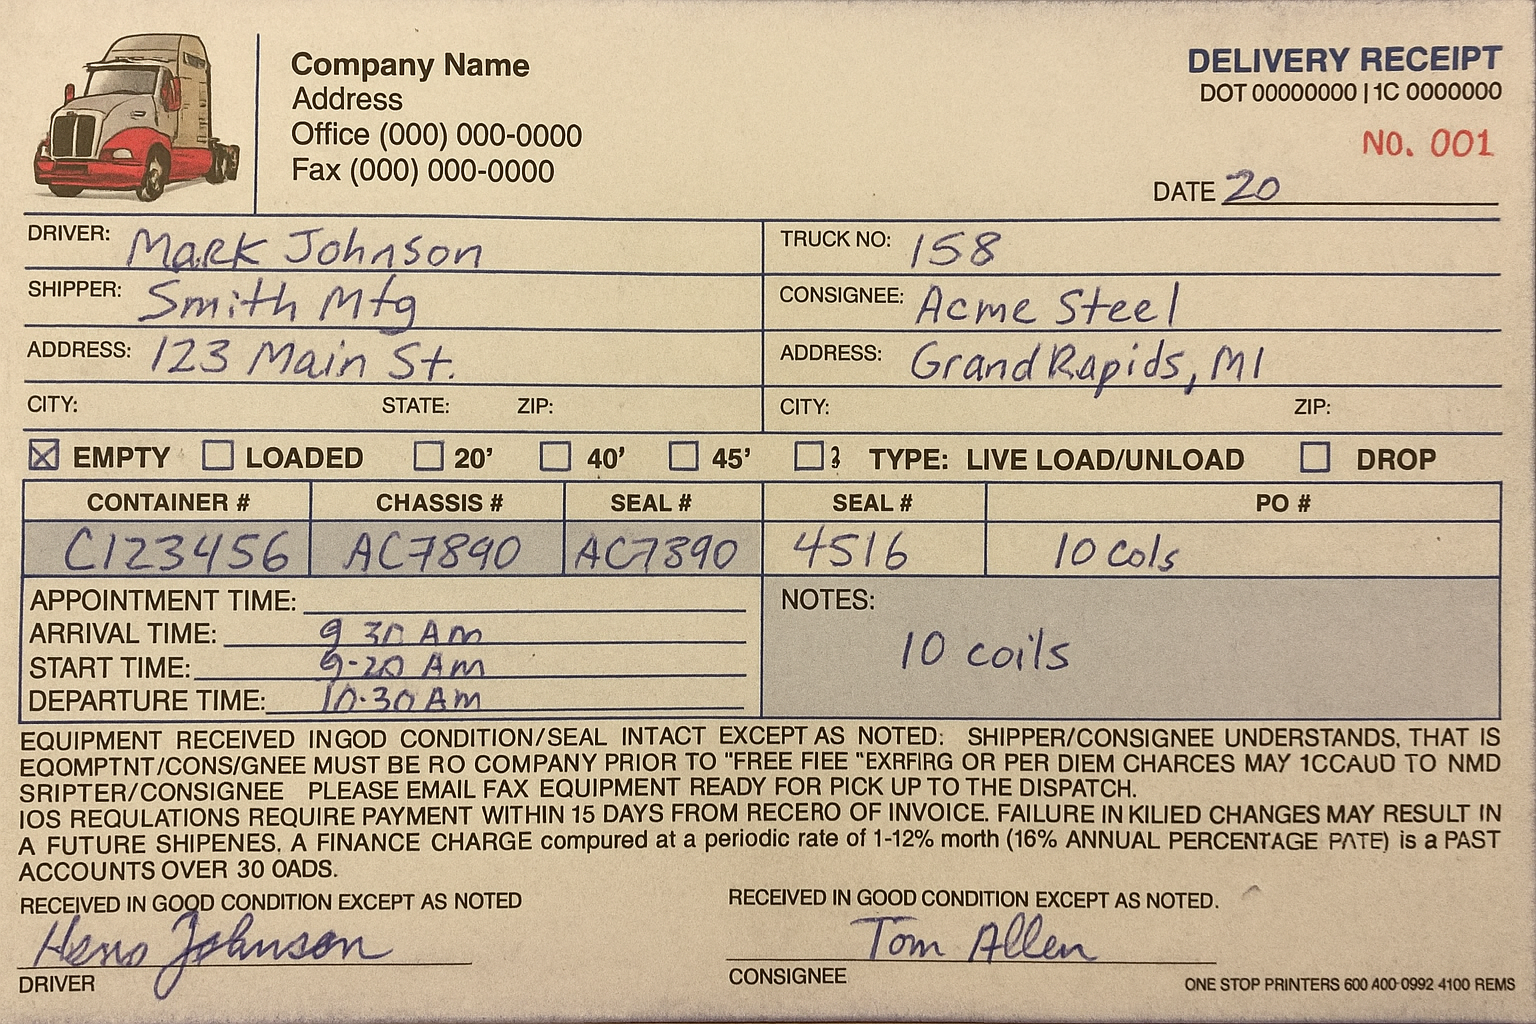 Company Name
Address
Office (000) 000-0000
Fax (000) 000-0000
DELIVERY RECEIPT
DOT 00000000 | 1C 0000000
NO. 001
DATE 20
DRIVER: Mark Johnson
TRUCK NO: 158
SHIPPER: Smith Mfg
CONSIGNEE: Acme Steel
ADDRESS: 123 Main St.
ADDRESS: Grand Rapids, MI
CITY: STATE: ZIP:
CITY: ZIP:
EMPTY LOADED 20' 40' 45' TYPE: LIVE LOAD/UNLOAD DROP
CONTAINER # CHASSIS # SEAL # SEAL # PO #
C123456 AC7890 AC7390 4516 10 cols
APPOINTMENT TIME:
ARRIVAL TIME: 9 30 Am
START TIME: 9-20 Am
DEPARTURE TIME: 10.30 Am
NOTES:
10 coils
EQUIPMENT RECEIVED INGOD CONDITION/SEAL INTACT EXCEPT AS NOTED: SHIPPER/CONSIGNEE UNDERSTANDS, THAT IS
EQOMPTNT/CONS/GNEE MUST BE RO COMPANY PRIOR TO "FREE FIEE "EXRFIRG OR PER DIEM CHARCES MAY 1CCAUD TO NMD
SRIPTER/CONSIGNEE PLEASE EMAIL FAX EQUIPMENT READY FOR PICK UP TO THE DISPATCH.
IOS REQULATIONS REQUIRE PAYMENT WITHIN 15 DAYS FROM RECERO OF INVOICE. FAILURE IN KILIED CHANGES MAY RESULT IN
A FUTURE SHIPENES. A FINANCE CHARGE compured at a periodic rate of 1-12% morth (16% ANNUAL PERCENTAGE PATE) is a PAST
ACCOUNTS OVER 30 OADS.
RECEIVED IN GOOD CONDITION EXCEPT AS NOTED
RECEIVED IN GOOD CONDITION EXCEPT AS NOTED.
Johnson
Tom Allen
DRIVER
CONSIGNEE
ONE STOP PRINTERS 600 400-0992 4100 REMS